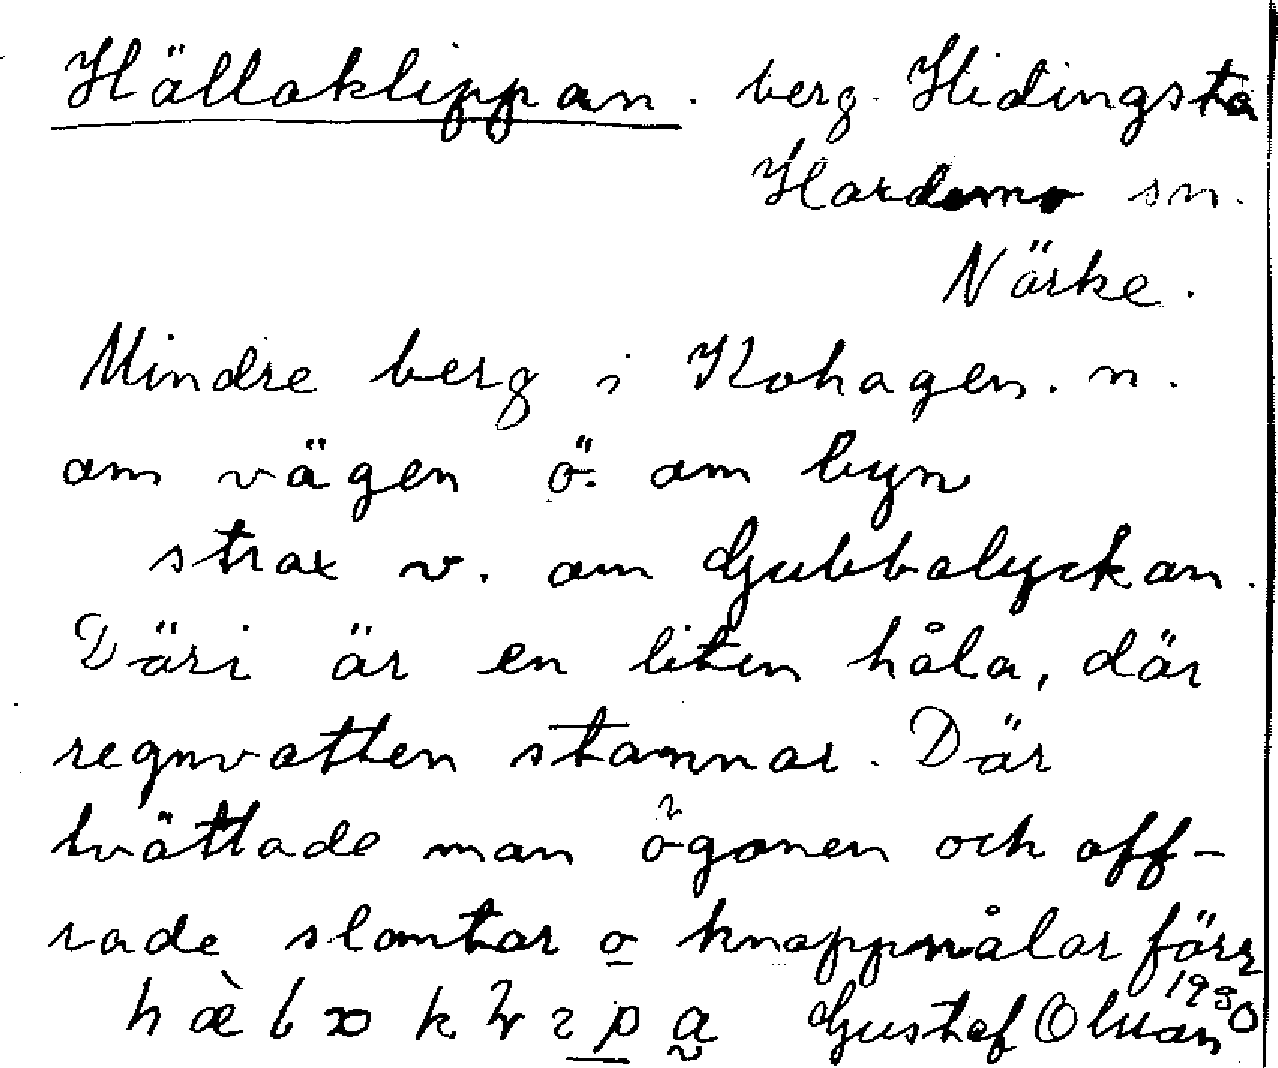 Hällaklippan. berg. Hidingsta
Hardemo sn.
Närke.
Mindre berg i Kohagen. n.
om vägen ö. om byn
strax v. om Gubbalyckan.
Däri är en liten håla, där
regnvatten stannar. Där
tvättade man ögonen och off-
rade slantar o knappnålar förr
Gustaf Olsson 1930